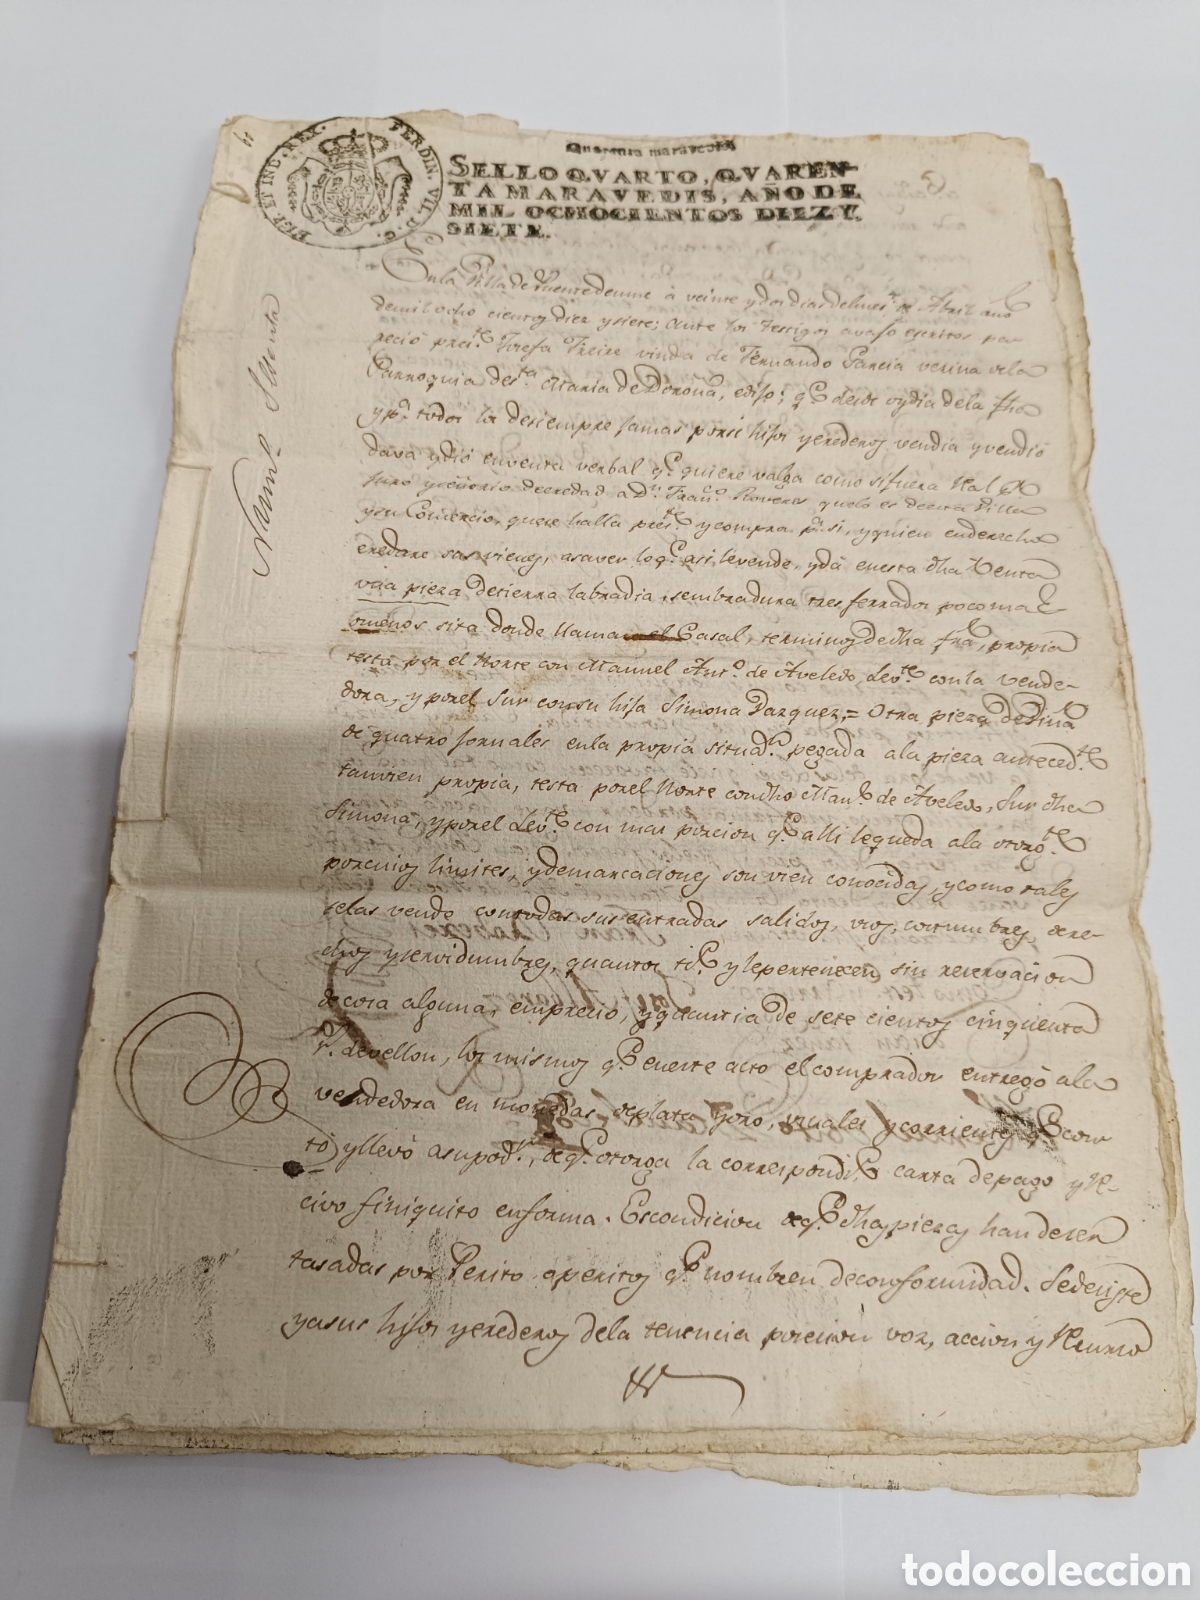 HISP. ET IND. REX. FERDIN. VII. D. G.
Quarenta maravedis
SELLO QVARTO, QVAREN-
TA MARAVEDIS, AÑO DE
MIL OCHOCIENTOS DIEZ Y
SIETE.
Num.o Sesenta
En la Villa de Puentedeume à veinte y dos dias del mes de Abril año
demil ocho cientos diez y siete; ante los testigos avajo escritos pa-
reciò pres.te Josefa Freire viuda de Fernando Garcia vecina de la
Parroquia de S.ta Maria de Doroña, edijo; q.e desde oy dia de la fha
y p.a todos los desiempre jamas porsi hijos yerederos vendia y vendiò
dava y diò enventa verbal q.e quiere valga como sifuera Real de
juro y deredad a D.n Fran.co quelo es de esta Villa
y su Comercio, quese halla pres.te y compra p.a si, y quien enderecho
eredare sus vienes, asaver lo q.e asi levende, y dà enesta dha Venta
una pieza detierra labradia, sembradura tres ferrados pocomas
omenos sita donde llaman el Casal, terminos de dha fra, propia
testa por el Norte con Manuel Ant.o de Aveledo, Lev.te conla vende-
dora, y porel Sur consu hija Simona Vazquez,= Otra pieza de Viña
de quatro jornales enla propia situaz.n pegada ala pieza anteced.te
tamvien propia, testa porel Norte condho Man.l de Aveledo, Sur dha
Simona, y porel Lev.te con mas porcion q.e alli lequeda ala otorg.te
porcuios limites, y demarcaciones son vien conocidas, y como tales
selas vende contodas sus entradas salidas, vsos, costumbres, dere-
chos y servidumbres, quantos tiè y lepertenecen sin reservacion
decosa alguna, emprecio, y quantia de sete cientos cinquenta
r.s devellon, los mismos q.e eneste acto el comprador entregò ala
vendedora en monedas deplata y oro, vsuales y corrientes q.e con-
tò y llevò asupod.r, de q.e otorga la correspond.te carta depago y re-
civo finiquito enforma. Escondicion de q.e dhas piezas handeser
tasadas por Perito o peritos q.e nombren deconformidad. Sedeniste
yasus hijos yerederos dela tenencia posesion voz, accion y Recurso
todocoleccion